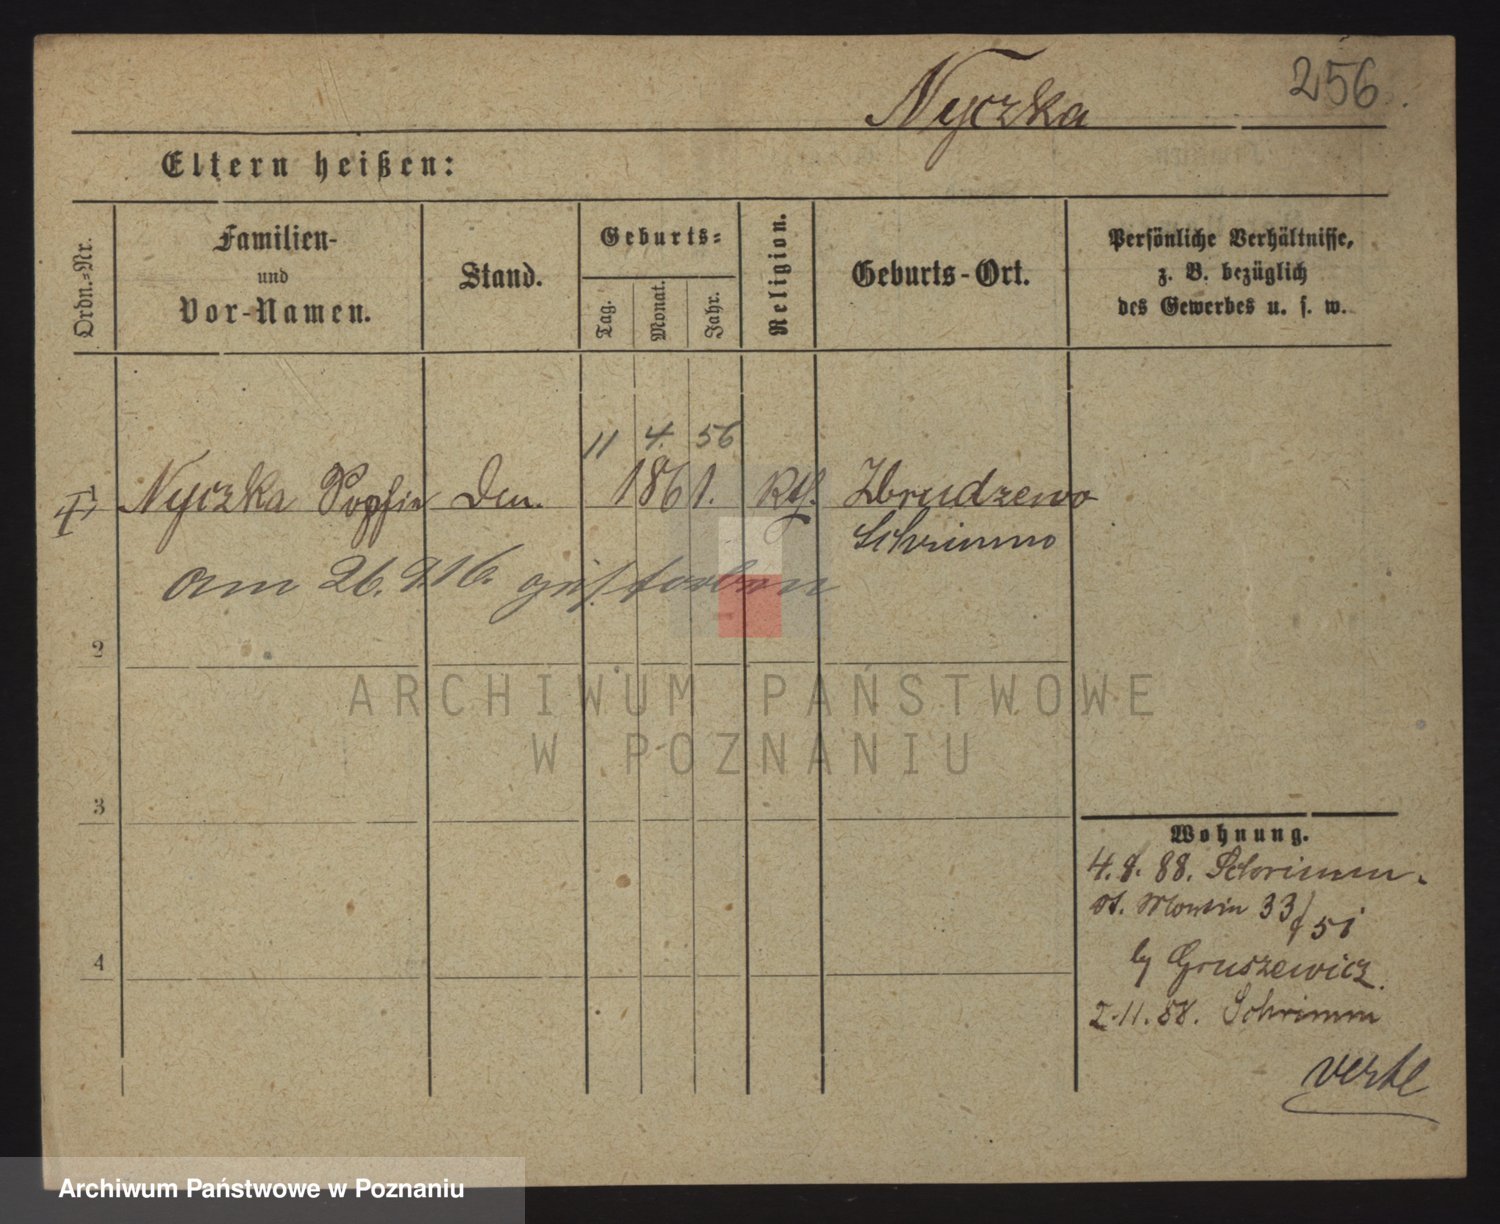 256
Nyczka
Eltern heißen:
Ordn.-Nr.
Familien-
und
Vor-Namen.
Stand.
Geburts-
Tag.
Monat.
Jahr.
Religion.
Geburts-Ort.
Persönliche Verhältnisse,
z. B. bezüglich
des Gewerbes u. s. w.
11 4. 56
Nyczka Sophie 1861. Zbrudzewo
Schrimm
am 26. 2. 16. gestorben
2
3
4
Wohnung.
4. 8. 88. Schrimm.
St. Martin 33/51
by Gruszewicz.
2. 11. 88. Schrimm
verte
ARCHIWUM PAŃSTWOWE
W POZNANIU
Archiwum Państwowe w Poznaniu